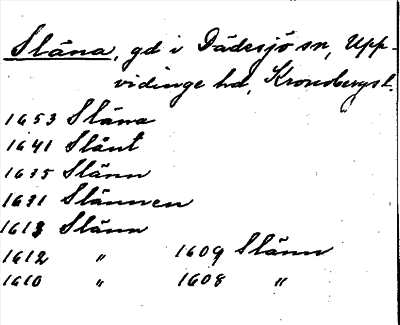 Släna, gd i Dädesjö sn, Upp-
vidinge hd, Kronobergs l.
1653 Släna
1641 Slänt
1635 Slänn
1631 Slännen
1613 Slänn
1612 " 1609 Slänn
1610 " 1608 "